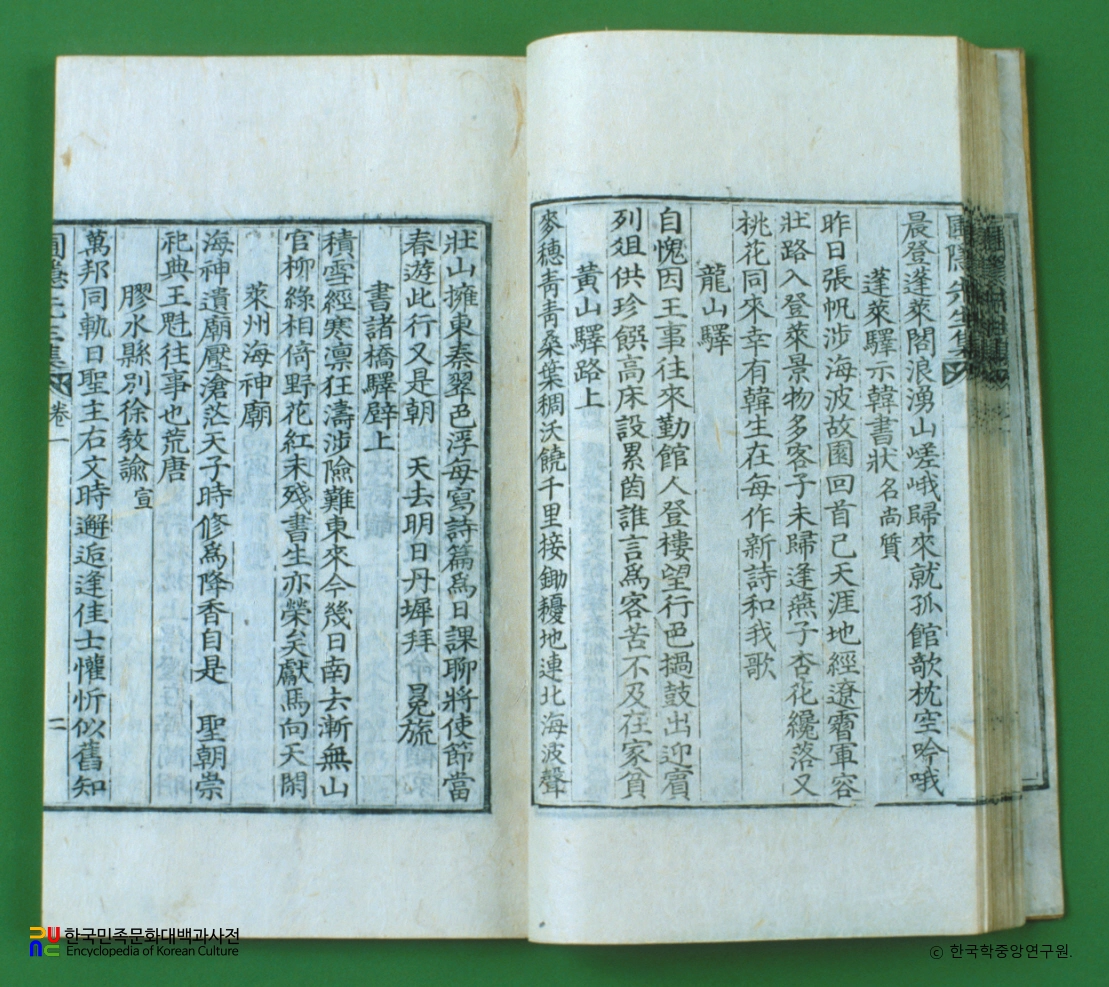 圃隱先生集
晨登蓬萊閣浪湧山嵯峨歸來就孤館欹枕空吟哦
蓬萊驛示韓書狀名尚質
昨日張帆涉海波故園回首已天涯地經遼霫軍容
壯路入登萊景物多客子未歸逢燕子杏花纔落又
桃花同來幸有韓生在每作新詩和我歌
龍山驛
自愧因王事往來勤館人登樓望行色撾鼓出迎賓
列俎供珍饌高床設累茵誰言爲客苦不及在家貧
黄山驛路上
麥穗靑靑桑葉稠沃饒千里接鋤耰地連北海波聲
壯山擁東秦翠色浮每寫詩篇爲日課聊將使節當
春遊此行又是朝 天去明日丹墀拜 冕旒
書諸橋驛壁上
積雪經寒凛狂濤涉險難東來今幾日南去漸無山
官柳綠相倚野花紅未殘書生亦榮矣獻馬向天閑
萊州海神廟
海神遺廟壓滄茫天子時修爲降香自是 聖朝崇
祀典王魁往事也荒唐
膠水縣別徐敎諭宣
萬邦同軌日聖主右文時邂逅逢佳士懽忻似舊知
圃隱先生集
卷一
二
한국민족문화대백과사전
Encyclopedia of Korean Culture
© 한국학중앙연구원.